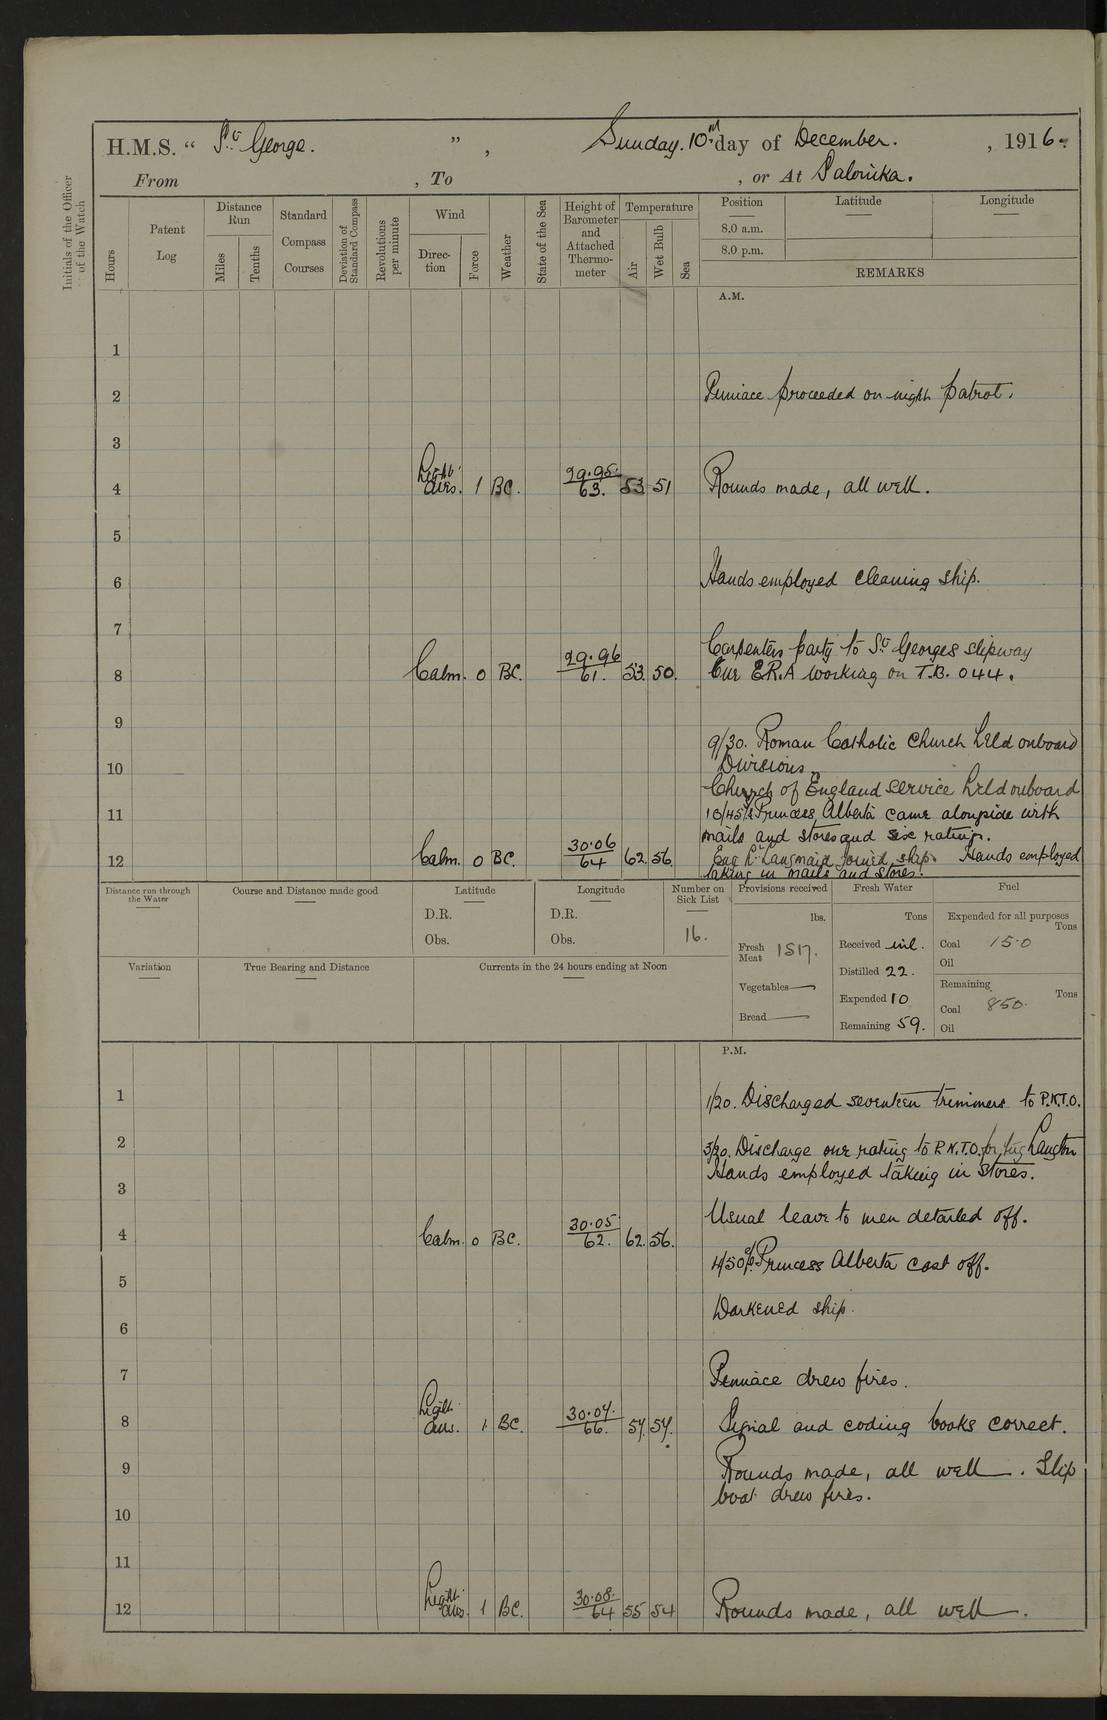 H.M.S. “ St. George. ” , Sunday. 10th day of December. , 1916.
From , To , or At Salonika.
Initials of the Officer of the Watch
Hours Patent Log Distance Run Miles Tenths Standard Compass Courses Deviation of Standard Compass Revolutions per minute Wind Direction Force Weather State of the Sea Height of Barometer and Attached Thermometer Temperature Air Wet Bulb Sea Position Latitude Longitude
8.0 a.m.
8.0 p.m.
REMARKS
A.M.
1
2 Pinnace proceeded on night patrol.
3
4 Light airs. 1 BC. 29.95. 63. 53 51 Rounds made, all well.
5
6 Hands employed cleaning ship.
7 Carpenters party to St. Georges slipway
8 Calm. 0 BC. 29.96 61. 53. 50. One E.R.A working on T.B. 044.
9
9/30. Roman Catholic Church held onboard
10 Divisions.
Church of England service held onboard
11 10/45 Princess Alberta came alongside with
mails and stores and six ratings.
12 Calm. 0 BC. 30.06 64 62. 56 Eng Lt. Langmaid joined ship. Hands employed
taking in mails and stores.
Distance run through the Water Course and Distance made good Latitude Longitude Number on Sick List Provisions received Fresh Water Fuel
D.R. D.R. lbs. Tons Expended for all purposes Tons
Obs. Obs. 16. Fresh Meat 1517. Received nil. Coal 15.0
Oil
Variation True Bearing and Distance Currents in the 24 hours ending at Noon Distilled 22.
Vegetables Expended 10 Remaining Tons
Coal 850.
Bread Remaining 59. Oil
P.M.
1 1/20. Discharged seventeen trimmers to P.N.T.O.
2 3/20. Discharge one rating to P.N.T.O. for tug
Hands employed taking in stores.
3
Usual leave to men detailed off.
4 Calm. 0 BC. 30.05 62. 62. 56.
4/50 Princess Alberta cast off.
5
Darkened ship.
6
7 Pinnace drew fires.
8 Light airs. 1 BC. 30.04. 66. 57. 54. Signal and coding books correct.
9 Rounds made, all well. Slip
boat drew fires.
10
11
12 Light airs. 1 BC. 30.08. 64 55 54 Rounds made, all well.